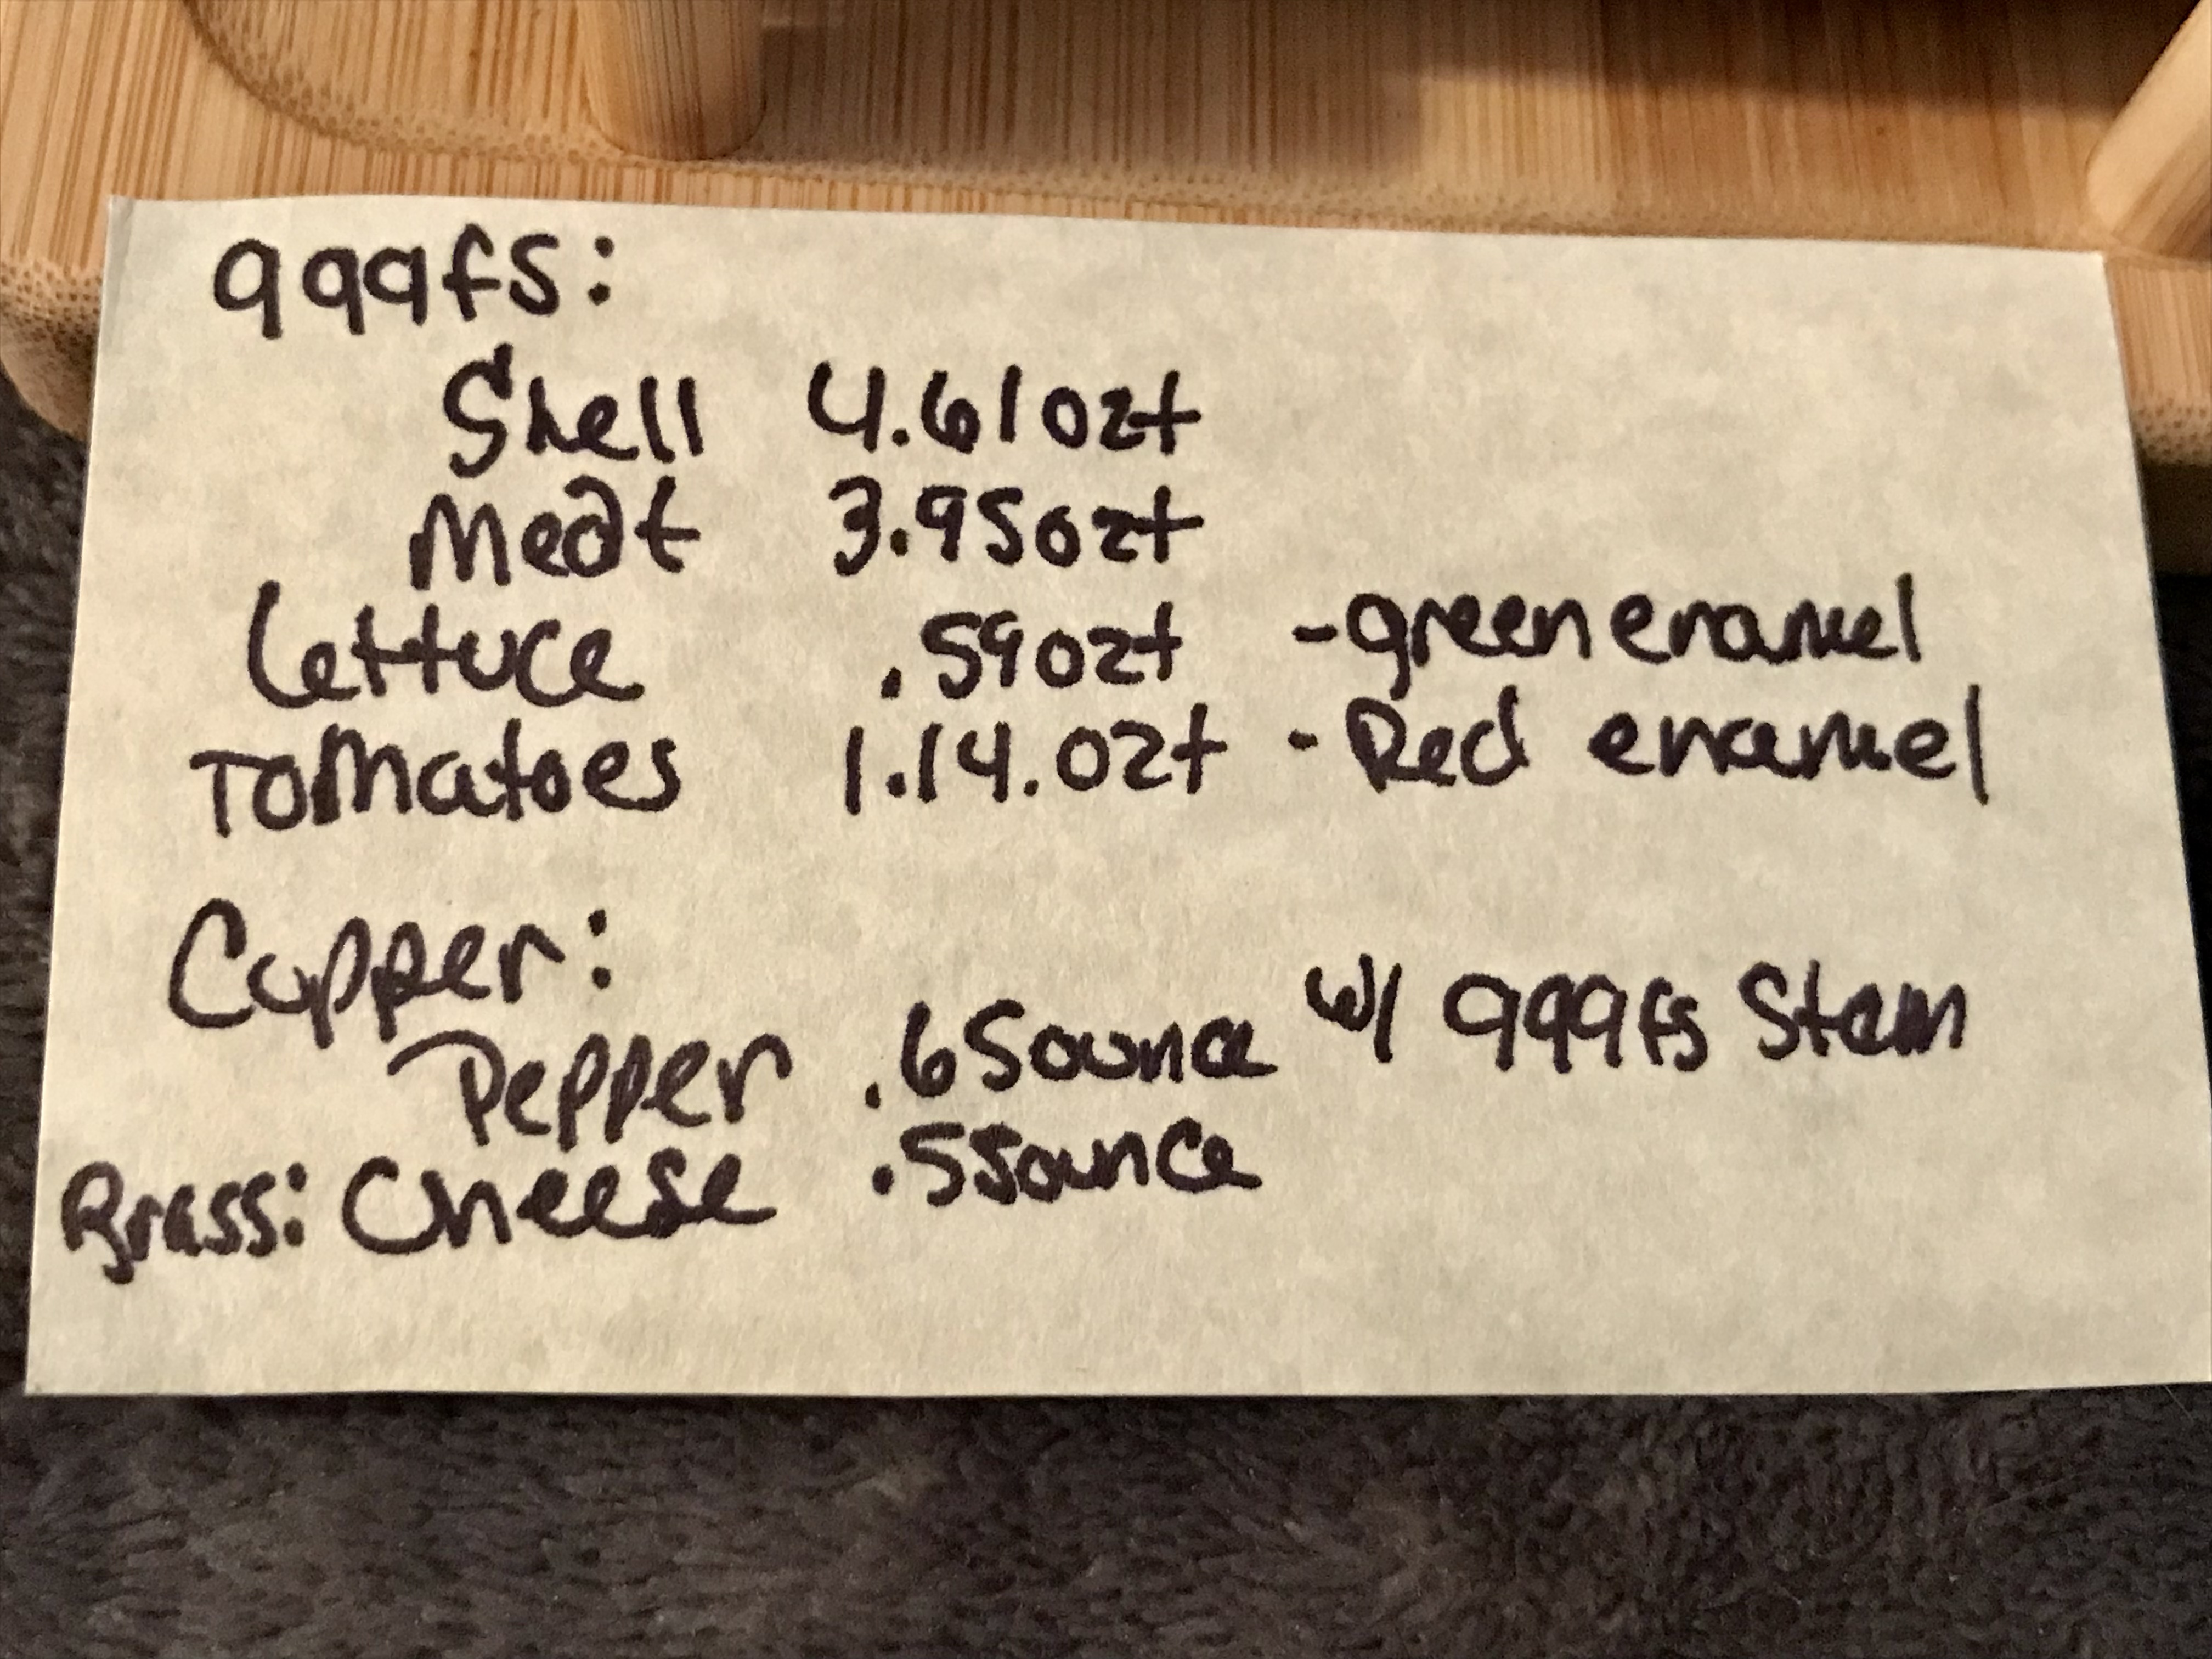 999fs:
Shell 4.61ozt
Meat 3.95ozt
Lettuce .59ozt - green enamel
Tomatoes 1.14.ozt - Red enamel
Copper:
Pepper .65ounce w/ 999fs Stem
Brass: Cheese .55ounce